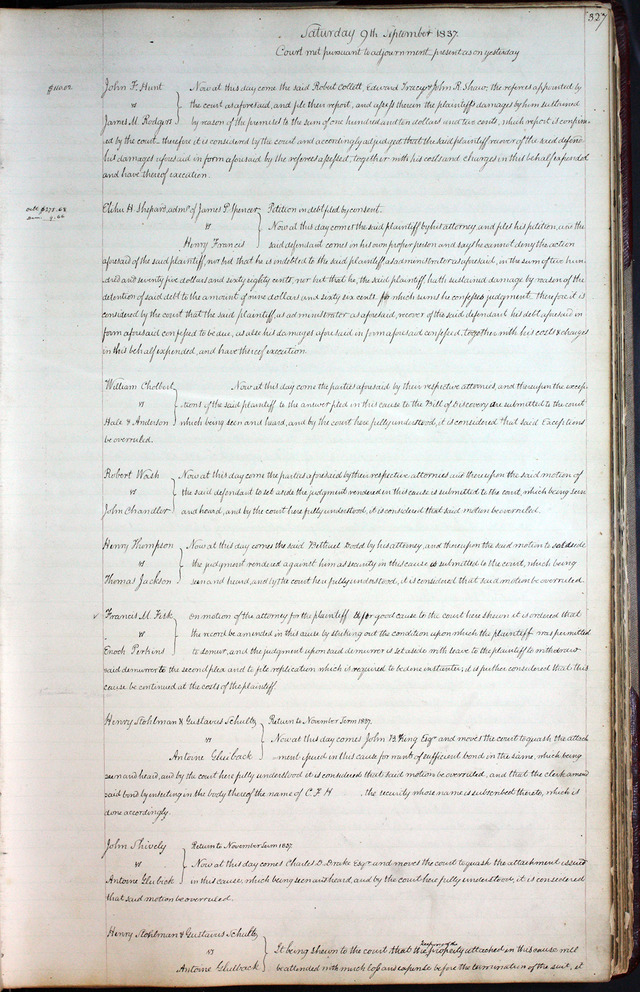 327
Saturday 9th September 1837.
Court met pursuant to adjournment present as on yesterday
$110.02
John F. Hunt } Now at this day come the said Robert Collett, Edward Tracy & John R. Shaw, the referees appointed by
vs the court as aforesaid, and file their report, and assess therein the plaintiffs damages by him sustained
James M. Rodgers by reason of the premises to the sum of one hundred and ten dollars and two cents, which report is confirm-
ed by the court therefore it is considered by the court and accordingly adjudged that the said plaintiff recover of the said defend-
his damages aforesaid in form aforesaid by the referees assessed, together with his costs and charges in this behalf expended
and have thereof execution.
debt $275.68
dam 9.66
Elihu H. Shepard, admr. of James P. Spencer } Petition in debt filed by consent.
vs Now at this day comes the said plaintiff by his attorney, and files his petition, and the
Henry Francis said defendant comes in his own proper person and says he cannot deny the action
aforesaid of the said plaintiff, nor but that he is indebted to the said plaintiff as administrator as aforesaid, in the sum of two hun-
dred and seventy five dollars and sixty eighty cents, nor but that he, the said plaintiff, hath sustained damage by reason of the
detention of said debt to the amount of nine dollars and sixty six cents. for which sums he confesses judgment. therefore it is
considered by the court that the said plaintiff as administrator as aforesaid, recover of the said defendant his debt aforesaid in
form aforesaid confessed to be due, as also his damages aforesaid in form aforesaid confessed, together with his costs & charges
in this behalf expended, and have thereof execution.
William Cholbert } Now at this day come the parties aforesaid by their respective attornies, and thereupon the excep-
vs tions of the said plaintiff to the answer filed in this cause to the Bill of Discovery are submitted to the court
Hale & Anderson which being seen and heard, and by the court here fully understood, it is considered that said Exceptions
be overruled.
Robert Wash } Now at this day come the parties aforesaid by their respective attornies and thereupon the said motion of
vs the said defendant to set aside the judgment rendered in this cause is submitted to the court, which being seen
John Chandler and heard, and by the court here fully understood, it is considered that said motion be overruled.
Henry Thompson } Now at this day comes the said Bethuel Dodd by his attorney, and thereupon the said motion to set aside
vs the judgment rendered against him as security in this cause is submitted to the court, which being
Thomas Jackson seen and heard, and by the court here fully understood, it is considered that said motion be overruled.
v Francis M. Fisk } On motion of the attorney for the plaintiff & for good cause to the court here shewn it is ordered that
vs the record be amended in this cause by striking out the condition upon which the plaintiff was permitted
Enoch Perkins to somur, and the judgment upon said demurrer is set aside with leave to the plaintiff to withdraw
said demurrer to the second plea and to file replication which is required to be done instanter, it is further considered that this
cause be continued at the costs of the plaintiff.
Henry Stohlman & Gustavus Schultz } Return to November Term 1837.
vs Now at this day comes John B. King Esqr. and moves the court to quash the attach-
Antoine Glusback ment issued in this cause for want of sufficient bond in the same, which being
seen and heard, and by the court here fully understood it is considered that said motion be overruled, and that the clerk amend
said bond by inserting in the body thereof the name of C. F. H . the security whose name is subscribed thereto, which is
done accordingly.
John Shively } Return to November Term 1837.
vs Now at this day comes Charles D. Drake Esqr. and moves the court to quash the attachment issued
Antoine Glubick in this cause, which being seen and heard, and by the court here fully understood, it is considered
that said motion be overruled.
Henry Stohlman & Gustavus Schultz } It being shewn to the court that the keeping of the property attached in this cause will
vs
Antoine Glulback be attended with much loss and expense before the termination of the suit, it